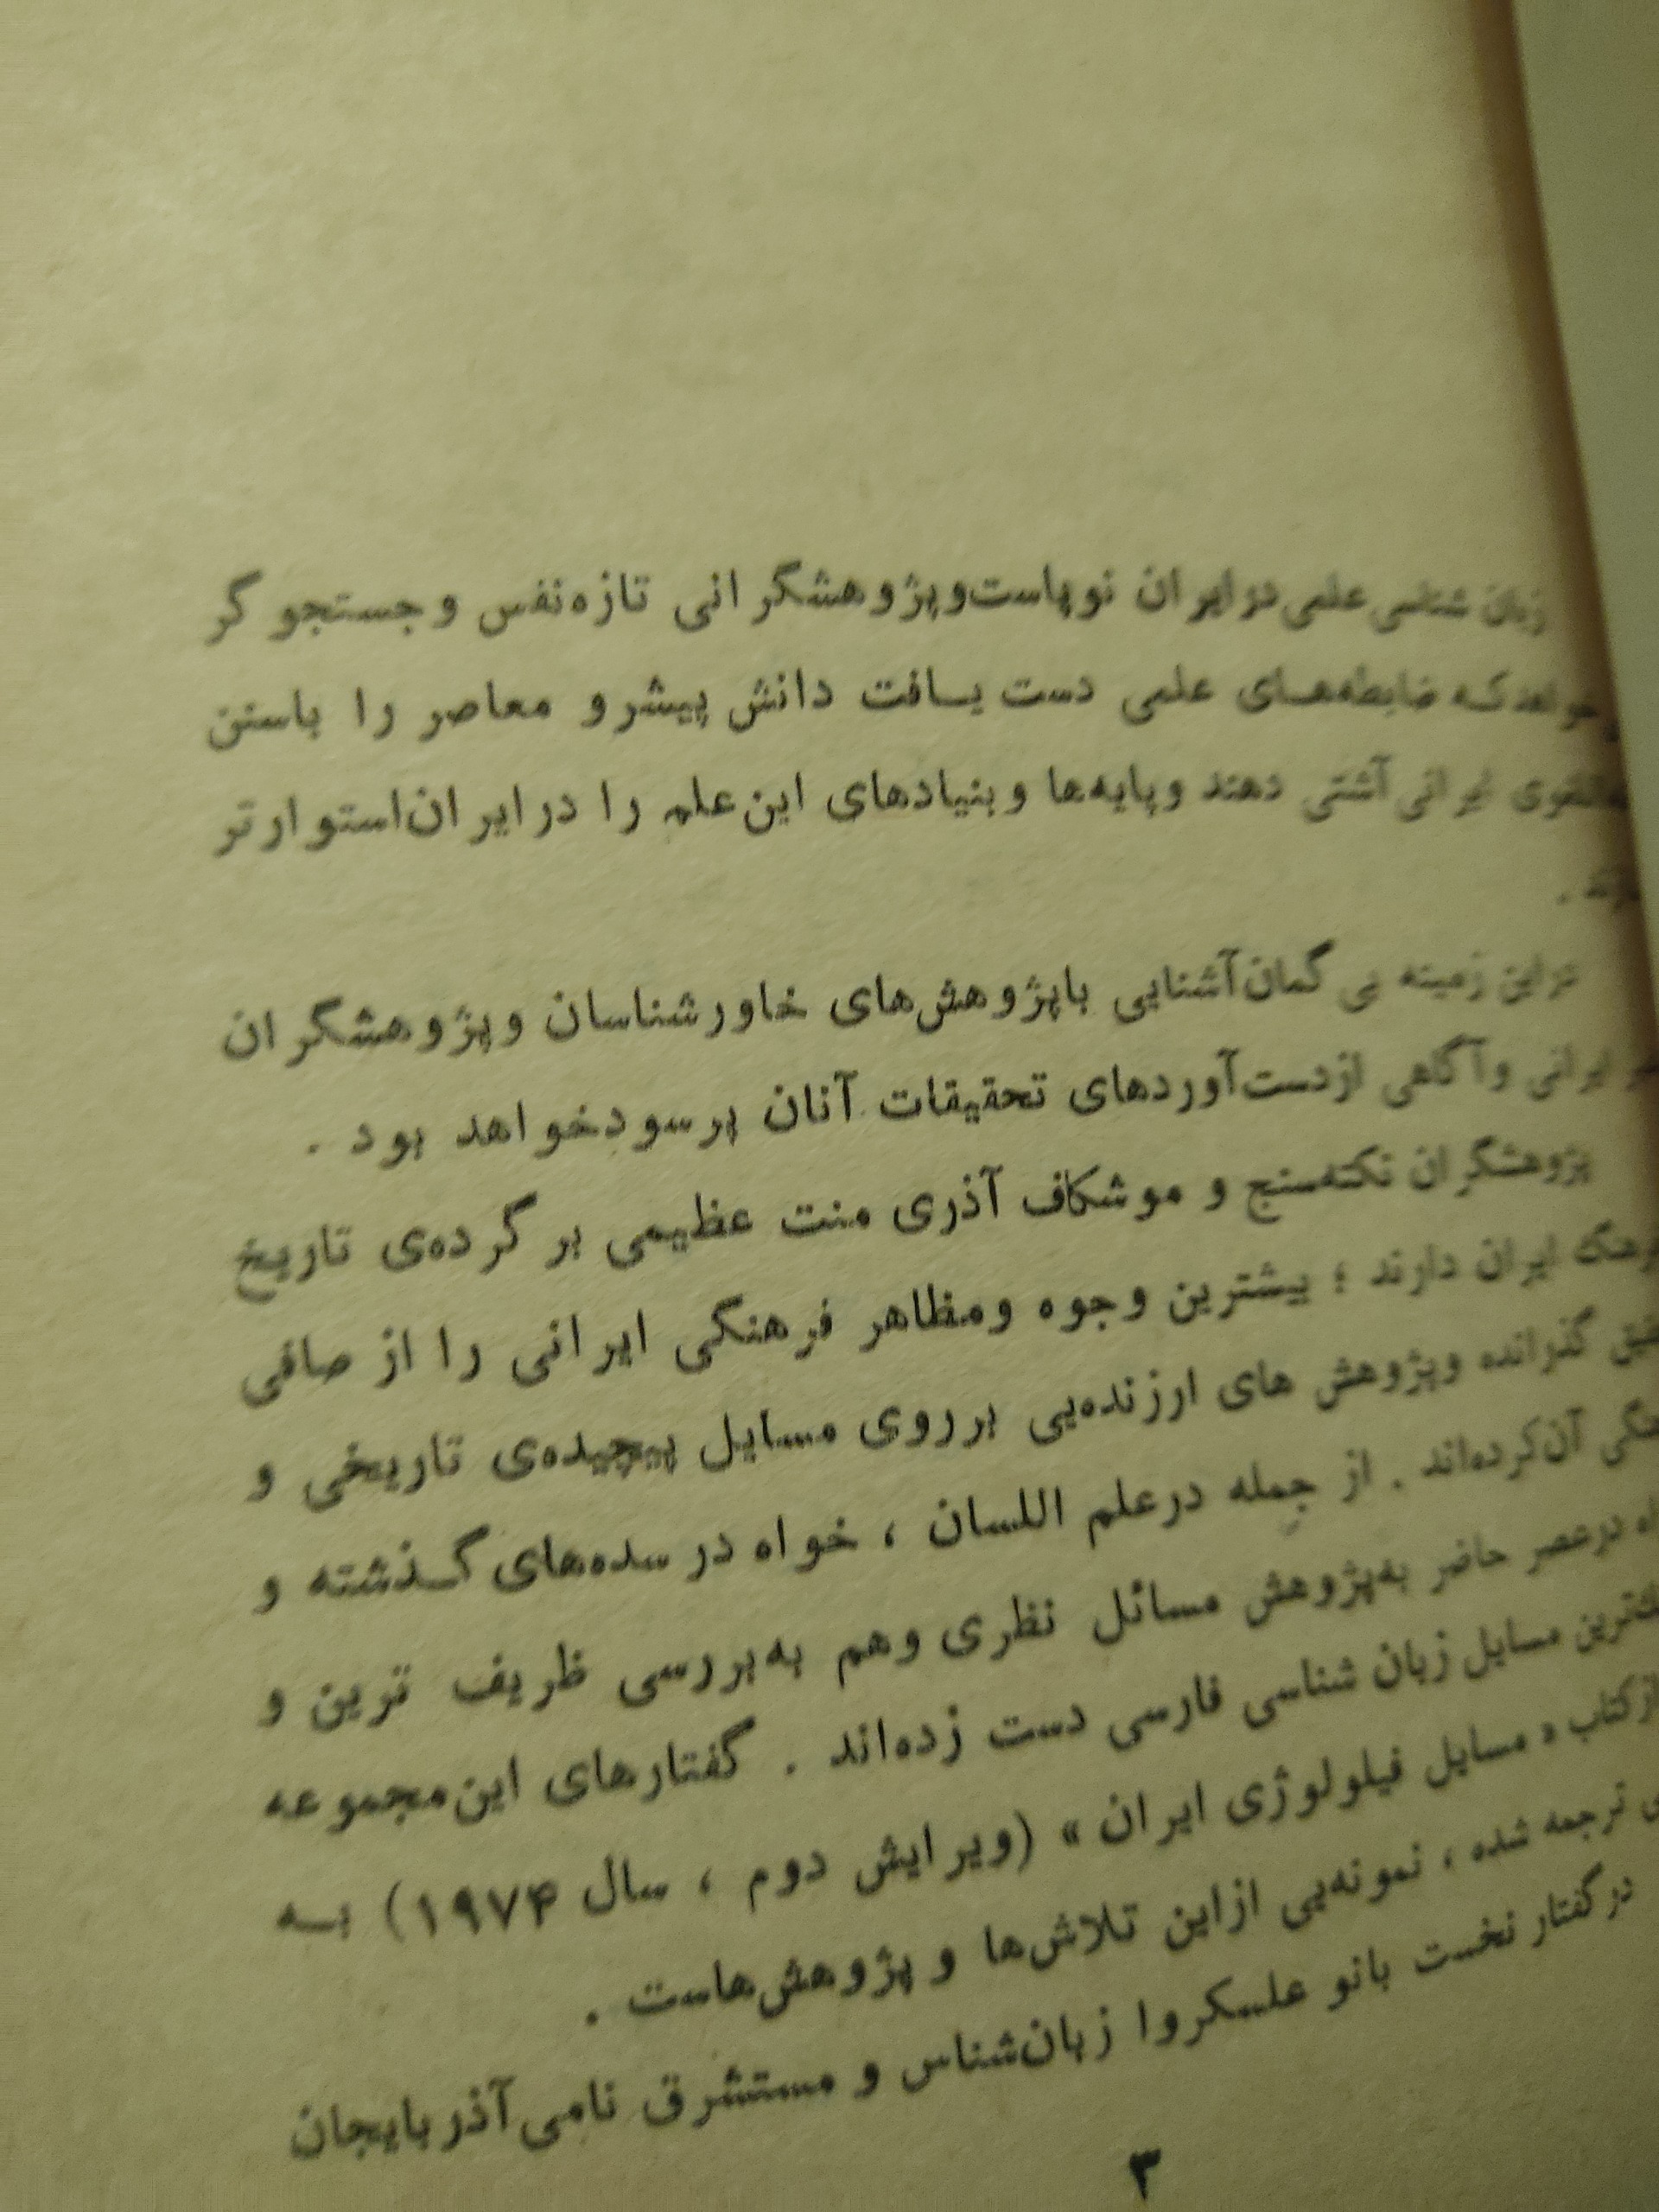 زبان شناسی علمی در ایران نوپاست و پژوهشگرانی تازه‌نفس و جستجو گر
خواهد که ضابطه‌های علمی دست یافت دانش پیشرو معاصر را باسنن
لغوی ایرانی آشتی دهند و پایه‌ها و بنیادهای این علم را در ایران استوارتر
در این زمینه بی گمان آشنایی با پژوهش‌های خاورشناسان و پژوهشگران
ایرانی و آگاهی از دست‌آوردهای تحقیقات آنان پرسود خواهد بود .
پژوهشگران نکته‌سنج و موشکاف آذری منت عظیمی بر گرده‌ی تاریخ
ایران دارند ؛ بیشترین وجوه و مظاهر فرهنگی ایرانی را از صافی
گذرانده و پژوهش های ارزنده‌یی بر روی مسایل پیچیده‌ی تاریخی و
آن کرده‌اند . از جمله در علم اللسان ، خواه در سده‌های گذشته و
در عصر حاضر به پژوهش مسائل نظری و هم به بررسی ظریف ترین و
مسایل زبان شناسی فارسی دست زده‌اند . گفتارهای این مجموعه
از کتاب « مسایل فیلولوژی ایران » (ویرایش دوم ، سال ۱۹۷۴) به
ترجمه شده ، نمونه‌یی از این تلاش‌ها و پژوهش‌هاست .
در گفتار نخست بانو علسکروا زبان‌شناس و مستشرق نامی آذربایجان
۳